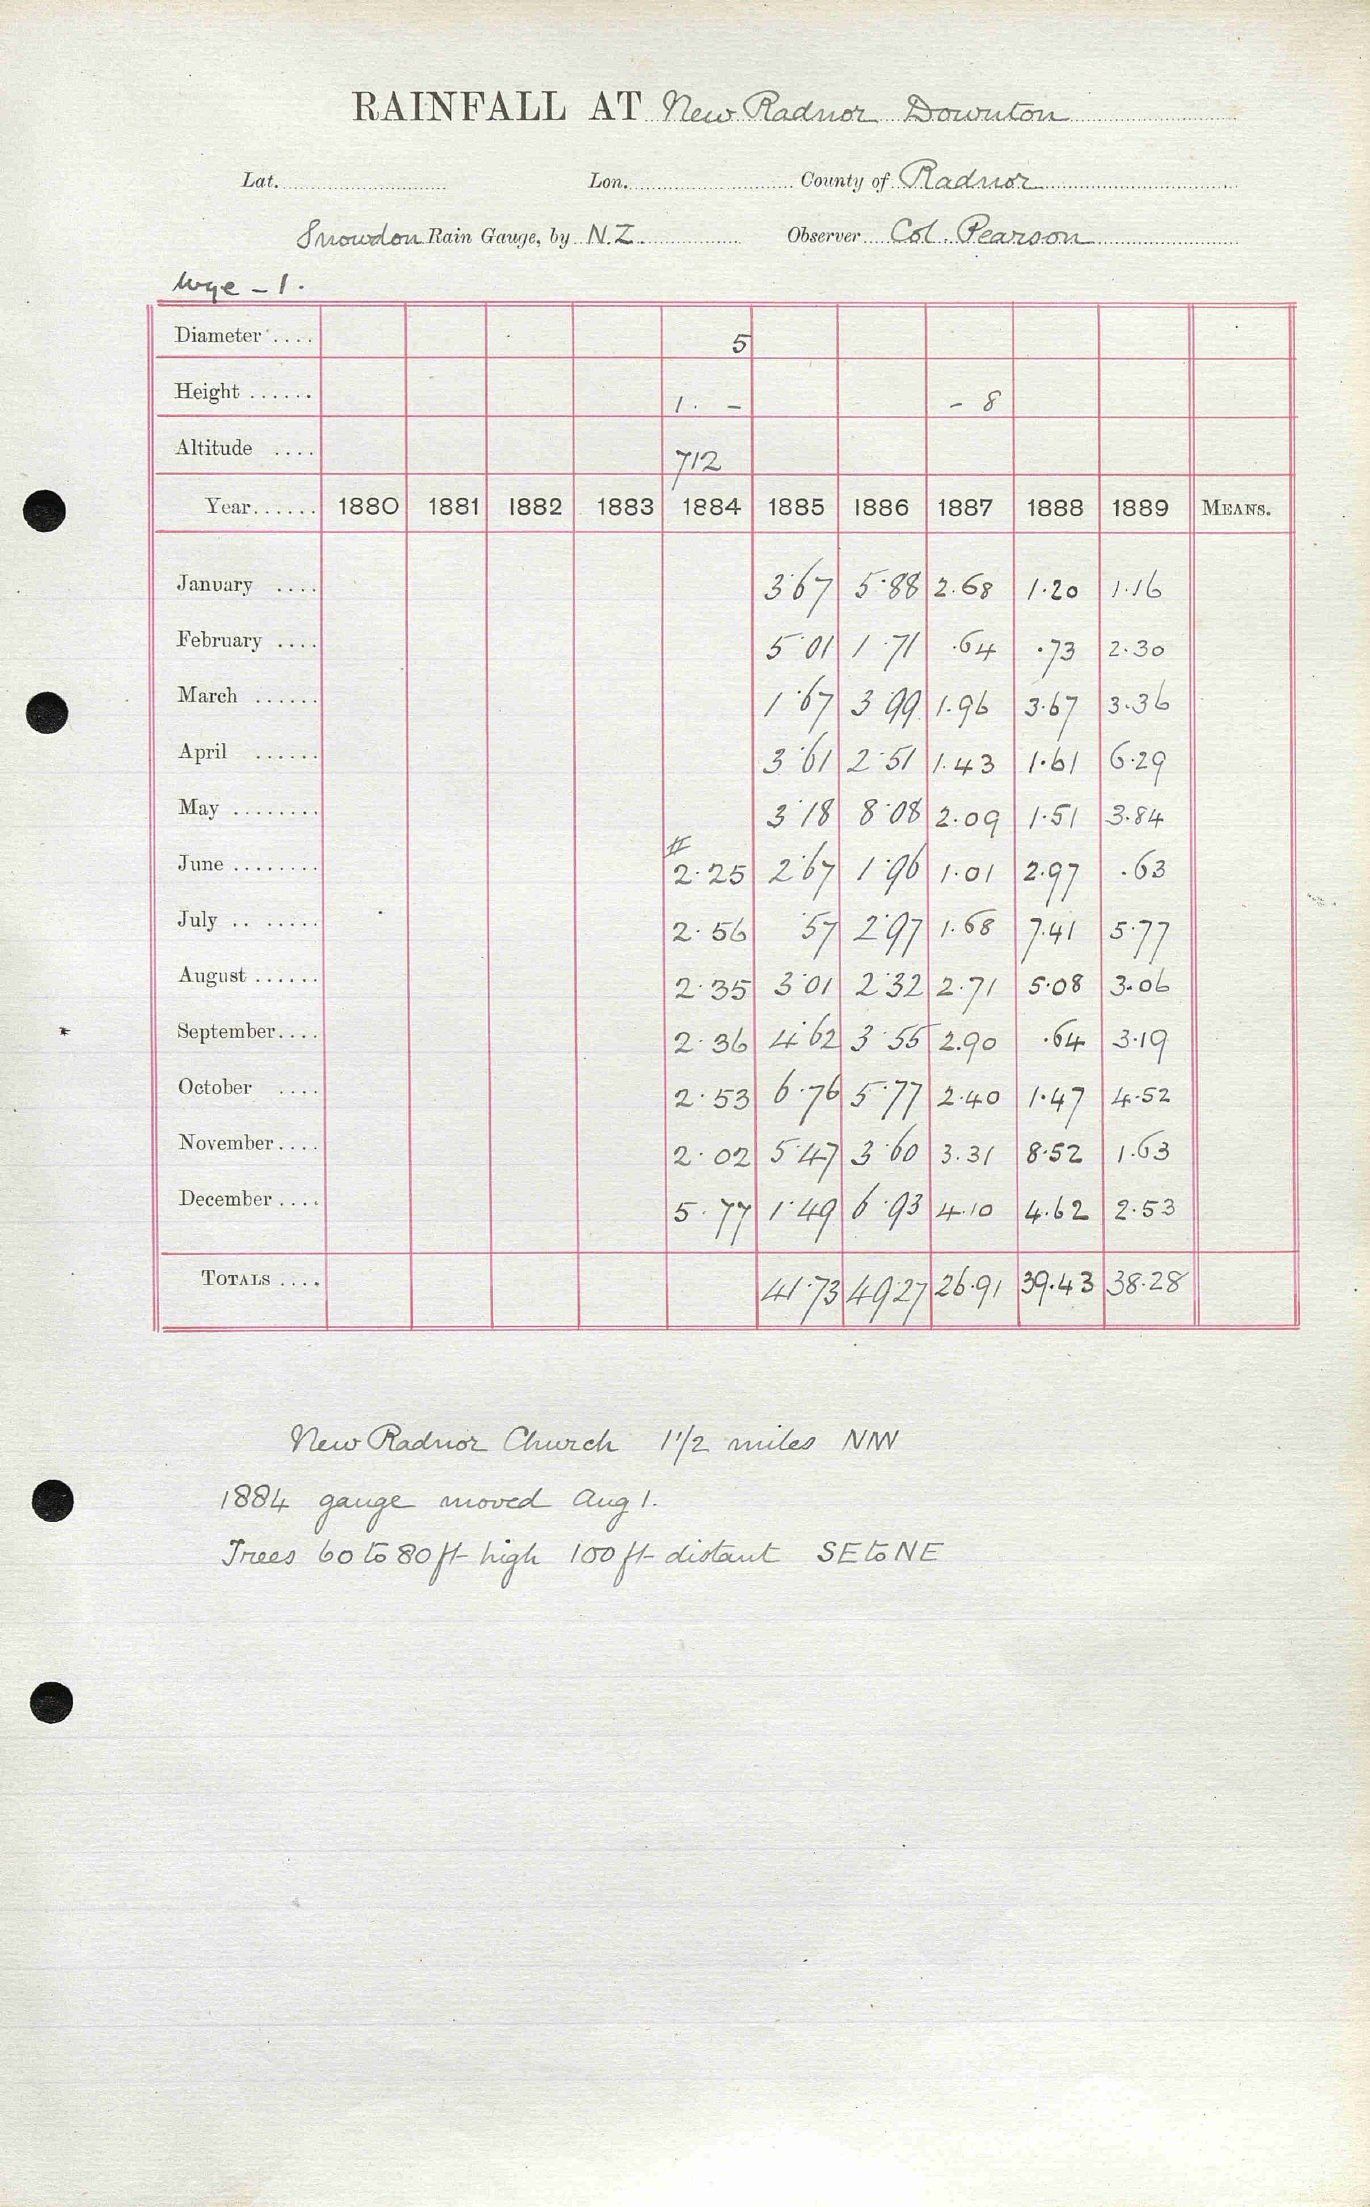 RAINFALL AT New Radnor Downton
Lat. Lon. County of Radnor
Snowdon Rain Gauge, by N.Z. Observer Col. Pearson
Wye - 1.
Diameter .... 5
Height ...... 1. - - 8
Altitude .... 712
Year...... 1880 1881 1882 1883 1884 1885 1886 1887 1888 1889 MEANS.
January .... 3.67 5.88 2.68 1.20 1.16
February .... 5.01 1.71 .64 .73 2.30
March ...... 1.67 3.99 1.96 3.67 3.36
April ...... 3.61 2.51 1.43 1.61 6.29
May ........ 3.18 8.08 2.09 1.51 3.84
June ........ # 2.25 2.67 1.96 1.01 2.97 .63
July .. ...... 2.56 .57 2.97 1.68 7.41 5.77
August ...... 2.35 3.01 2.32 2.71 5.08 3.06
September.... 2.36 4.62 3.55 2.90 .64 3.19
October .... 2.53 6.76 5.77 2.40 1.47 4.52
November.... 2.02 5.47 3.60 3.31 8.52 1.63
December.... 5.77 1.49 6.93 4.10 4.62 2.53
TOTALS .... 41.73 49.27 26.91 39.43 38.28
New Radnor Church 1 1/2 miles NW
1884 gauge moved Aug 1.
Trees 60 to 80 ft high 100 ft distant SE to NE